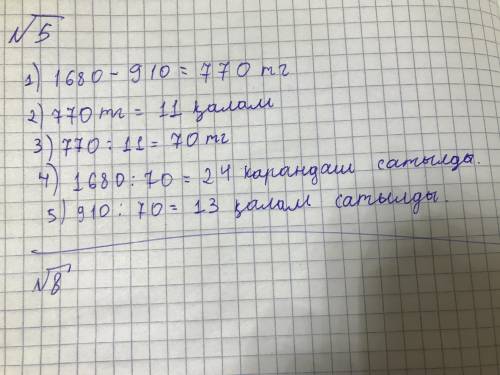 №5
1) 1680 - 910 = 770 тг
2) 770 тг = 11 қалам
3) 770 : 11 = 70 тг
4) 1680 : 70 = 24 карандаш сатылды.
5) 910 : 70 = 13 қалам сатылды.
№8